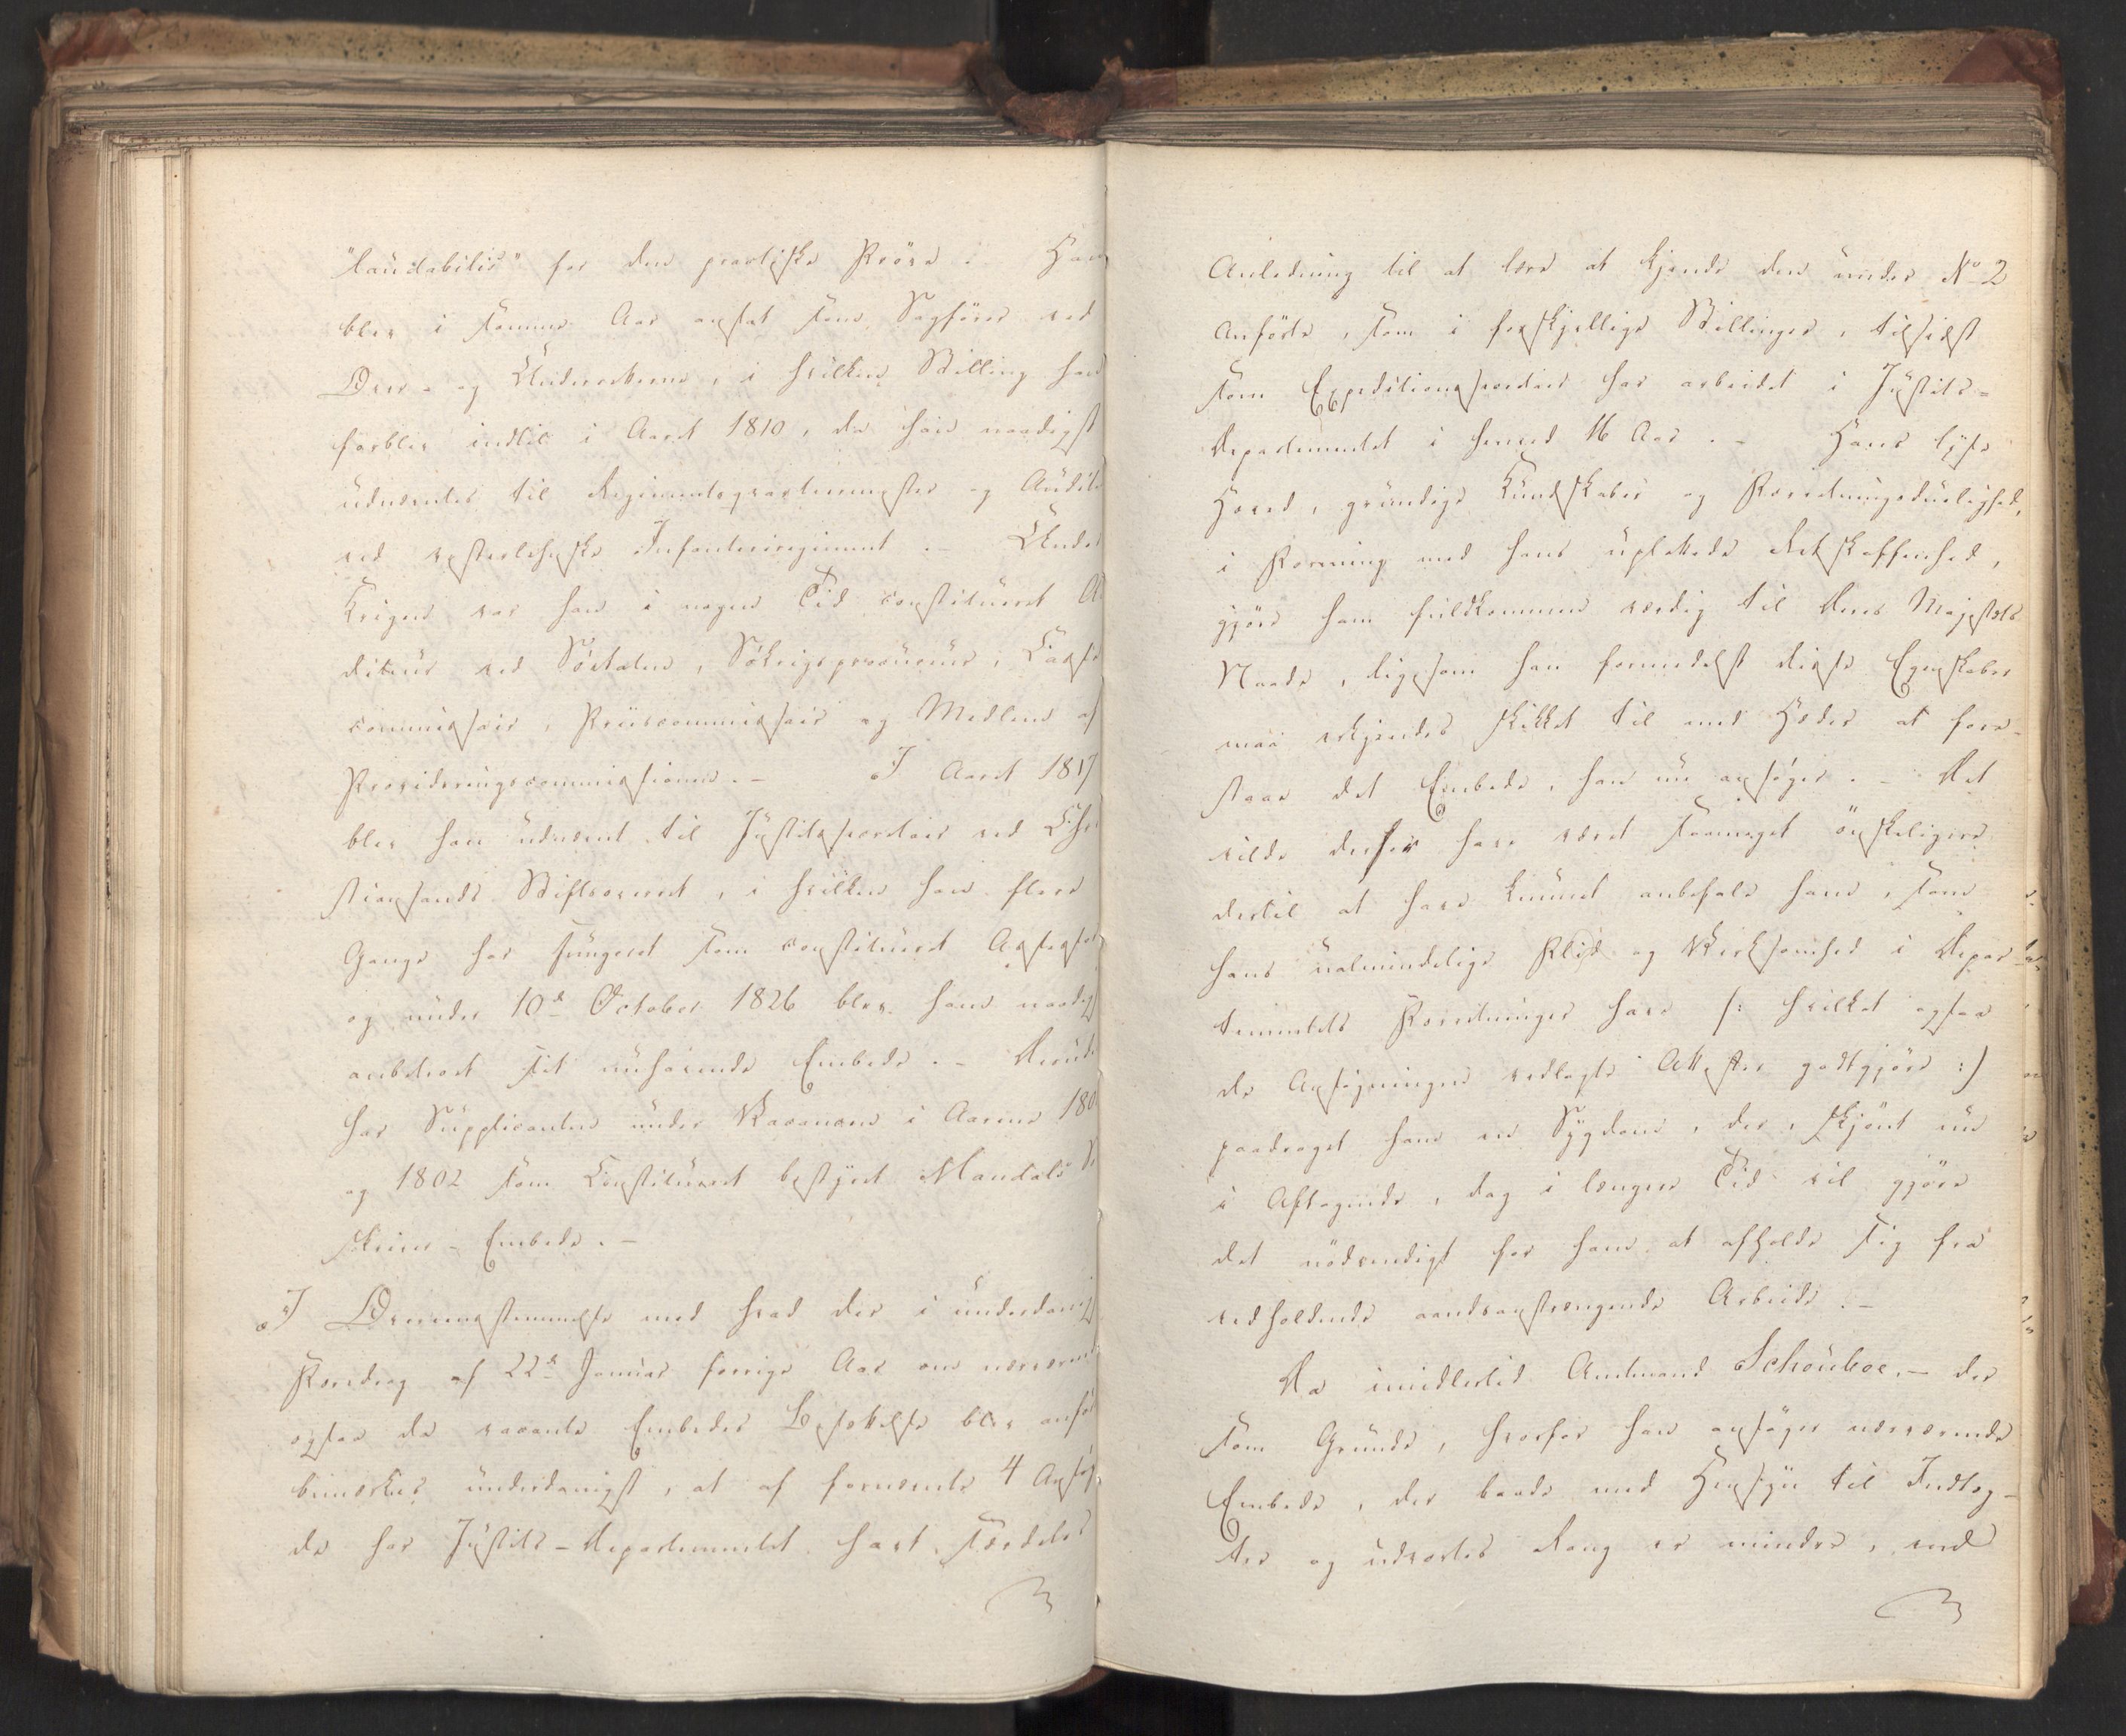 "laudabilis" for den practiske Pröve. Han
blev i samme Aar ansat som Sagförer ved
Over- og Underretterne, i hvilken Stilling han
forblev indtil i Aaret 1810, da han naadigst
udnævntes til Regimentsqvarteermester og Auditeur
ved vesterlehnske Infanteriregiment. – Under
Krigen var han i nogen Tid constitueret Au
diteur ved Söetaten, Sökrigsprocureur,
commissair, Priiscommissair og Medlem af
Provideringscommissionen. – I Aaret 1817
blev han udnævnt til Justitssecretair ved Chri
stiansands Stiftsoverret, i hvilken han flere
Gange har fungeret som constitueret Assessor
og under 10de October 1826 blev ham naadigst
anbetroet sit nuhavende Embede. – Desuden
har Supplicanten under Vacancen i Aarene 180
og 1802 som Constitueret bestyret Mandals
skriver-Embede. –
I Overeensstemmelse med hvad der i underdanigst
Foredrag af 22de Januar forrige Aar om nærværende
ogsaa da vacante Embedes Besættelse blev anfört
bemærkes underdanigst, at af fornævnte 4 Ansög
de har Justits-Departementet havt særdeles
Anledning til at lære at kjende den under No 2
Anförte, som i forskjellige Stillinger, tilsidst
som Expeditionssecretair har arbeidet i Justits-
Departementet i henved 16 Aar. – Hans lyse
Hoved, grundige Kundskaber og Forretningsduelighed,
i Forening med hans uplettede Retskaffenhed,
gjöre ham fuldkommen værdig til Deres Majestæts
Naade, ligesom han formedelst disse Egenskaber
maa erkjendes skikket til med Hæder at fore-
staae det Embede, han nu ansöger. – Det
vilde derfor have været saameget önskeligere
dertil at have kunnet anbefale ham, som
hans ualmindelige Flid og Virksomhed i Depar-
tementets Forretninger have /: hvilket ogsaa
de Ansögningen vedlagte Attester godtgjöre :/
paadraget ham en Sygdom, der, skjönt nu
i Aftagende, dog i længere Tid vil gjöre
det nödvendigt for ham at afholde sig fra
vedholdende aandsanstrengende Arbeide. –
Da imidlertid Amtmand Schouboe, – der
som Grunde, hvorfor han ansöger nærværende
Embede, der baade med Hensyn til Indtæg-
ter og udvortes Rang er mindre, end